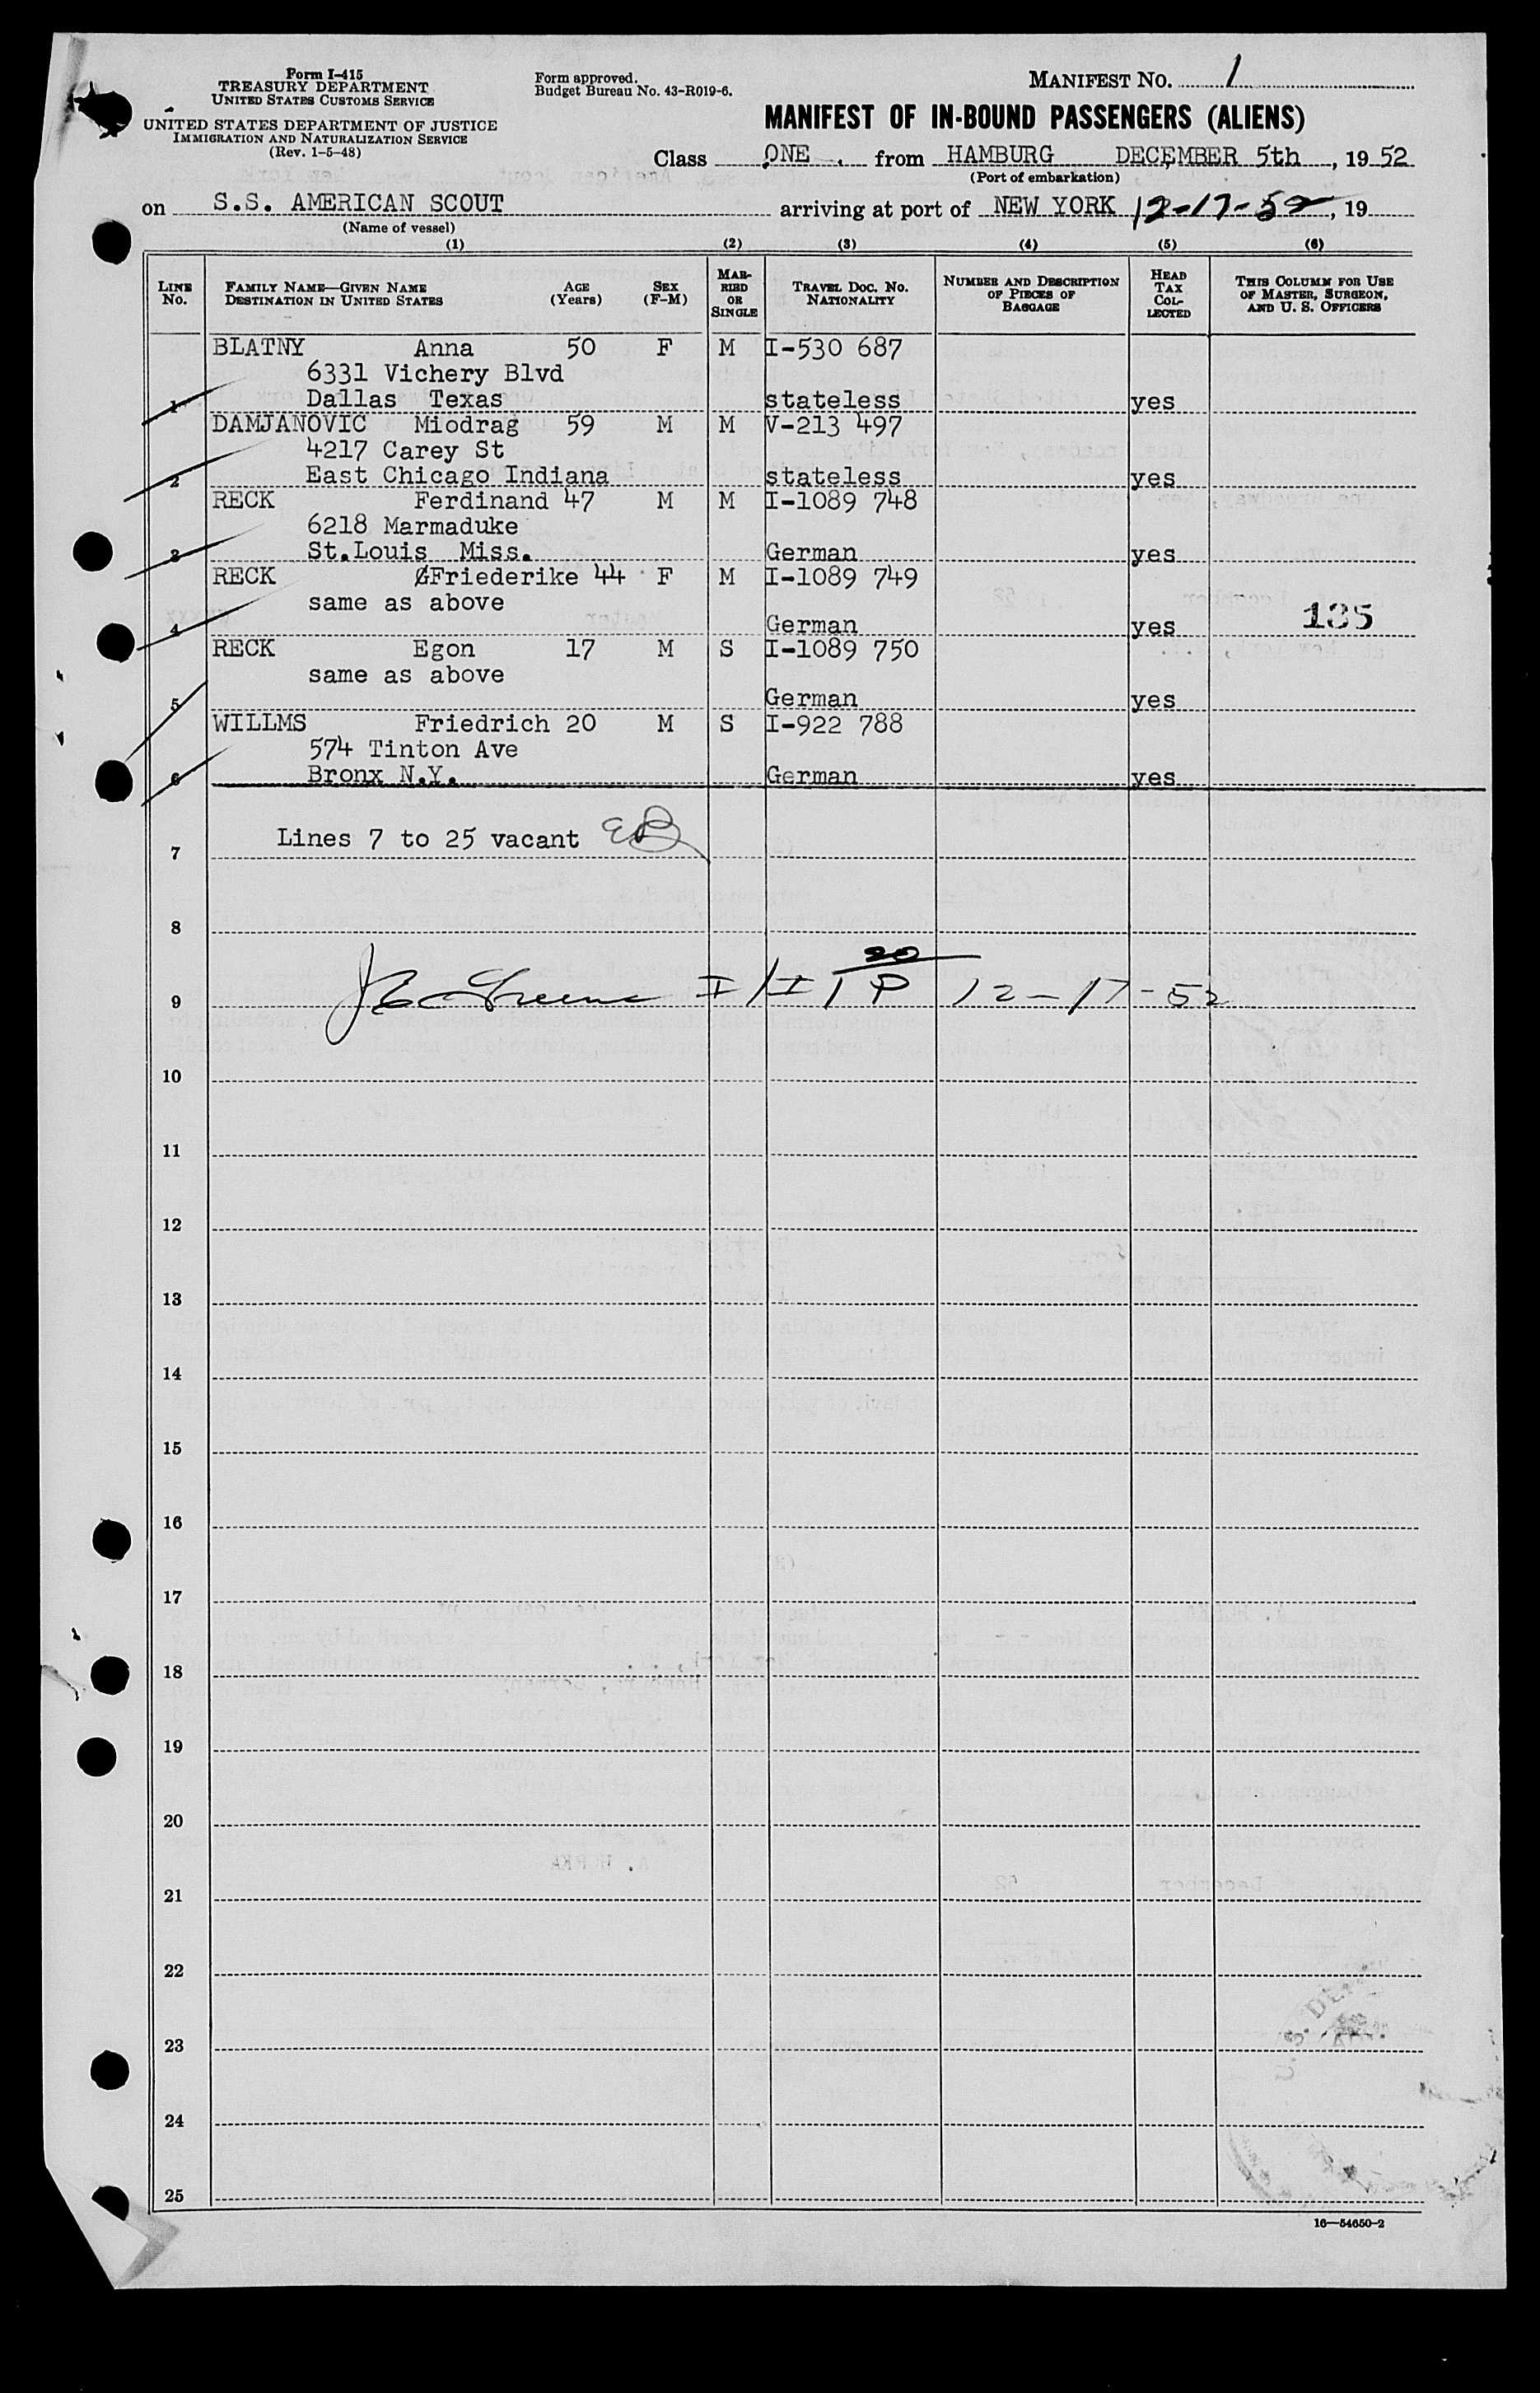 Form I-415
TREASURY DEPARTMENT
UNITED STATES CUSTOMS SERVICE
UNITED STATES DEPARTMENT OF JUSTICE
IMMIGRATION AND NATURALIZATION SERVICE
(Rev. 1-5-48)
Form approved.
Budget Bureau No. 43-R019-6.
MANIFEST NO. 1
MANIFEST OF IN-BOUND PASSENGERS (ALIENS)
Class ONE . from HAMBURG DECEMBER 5th, 1952
(Port of embarkation)
on S.S. AMERICAN SCOUT arriving at port of NEW YORK 12-17-52, 19
(Name of vessel)
(1) (2) (3) (4) (5) (6)
LINE NO. FAMILY NAME—GIVEN NAME DESTINATION IN UNITED STATES AGE (Years) SEX (F-M) MARRIED OR SINGLE TRAVEL DOC. NO. NATIONALITY NUMBER AND DESCRIPTION OF PIECES OF BAGGAGE HEAD TAX COLLECTED THIS COLUMN FOR USE OF MASTER, SURGEON, AND U. S. OFFICERS
BLATNY Anna 50 F M I-530 687
6331 Vichery Blvd
1 Dallas Texas stateless yes
DAMJANOVIC Miodrag 59 M M V-213 497
4217 Carey St
2 East Chicago Indiana stateless yes
RECK Ferdinand 47 M M I-1089 748
6218 Marmaduke
3 St.Louis Miss. German yes
RECK Friederike 44 F M I-1089 749
same as above
4 German yes 135
RECK Egon 17 M S I-1089 750
same as above
5 German yes
WILLMS Friedrich 20 M S I-922 788
574 Tinton Ave
6 Bronx N.Y. German yes
7 Lines 7 to 25 vacant EB
8
20
9 I/I 1 P 12-17-52
10
11
12
13
14
15
16
17
18
19
20
21
22
23
24
25
16—54650-2